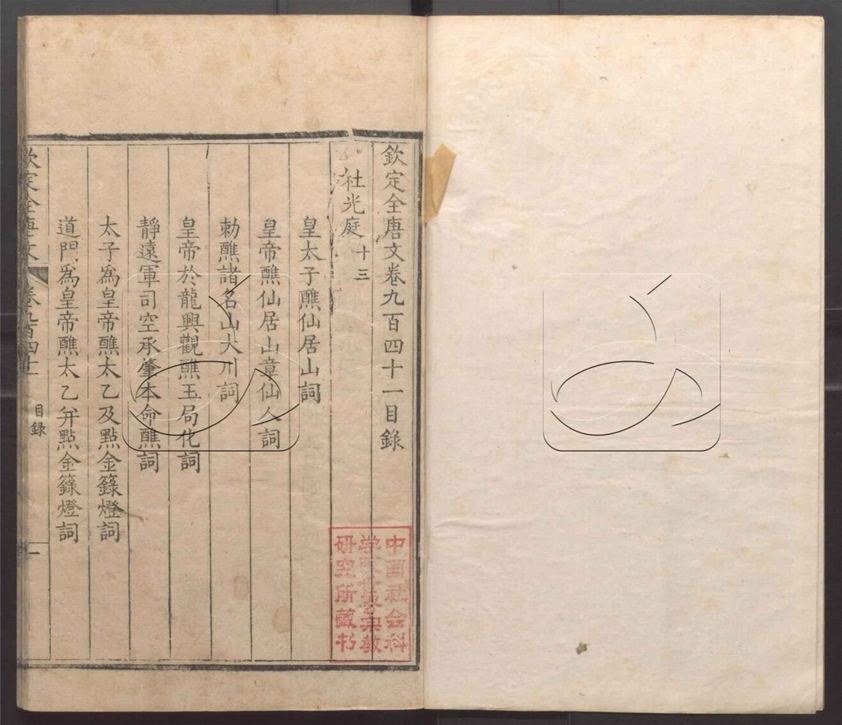 欽定全唐文卷九百四十一目錄
杜光庭 十三
皇太子醮仙居山詞
皇帝醮仙居山章仙人詞
勅醮諸名山大川詞
皇帝於龍興觀醮玉局化詞
靜遠軍司空承肇本命醮詞
太子為皇帝醮太乙及點金籙燈詞
道門為皇帝醮太乙并點金籙燈詞
欽定全唐文
卷九百四十一
目錄
一
中国社会科
学院世界宗教
研究所藏书